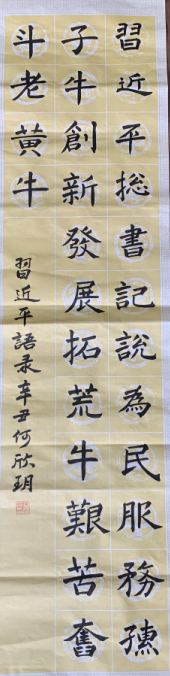 習近平総書記説為民服務孺
子牛創新發展拓荒牛艱苦奮
斗老黃牛
習近平語录辛丑何欣玥